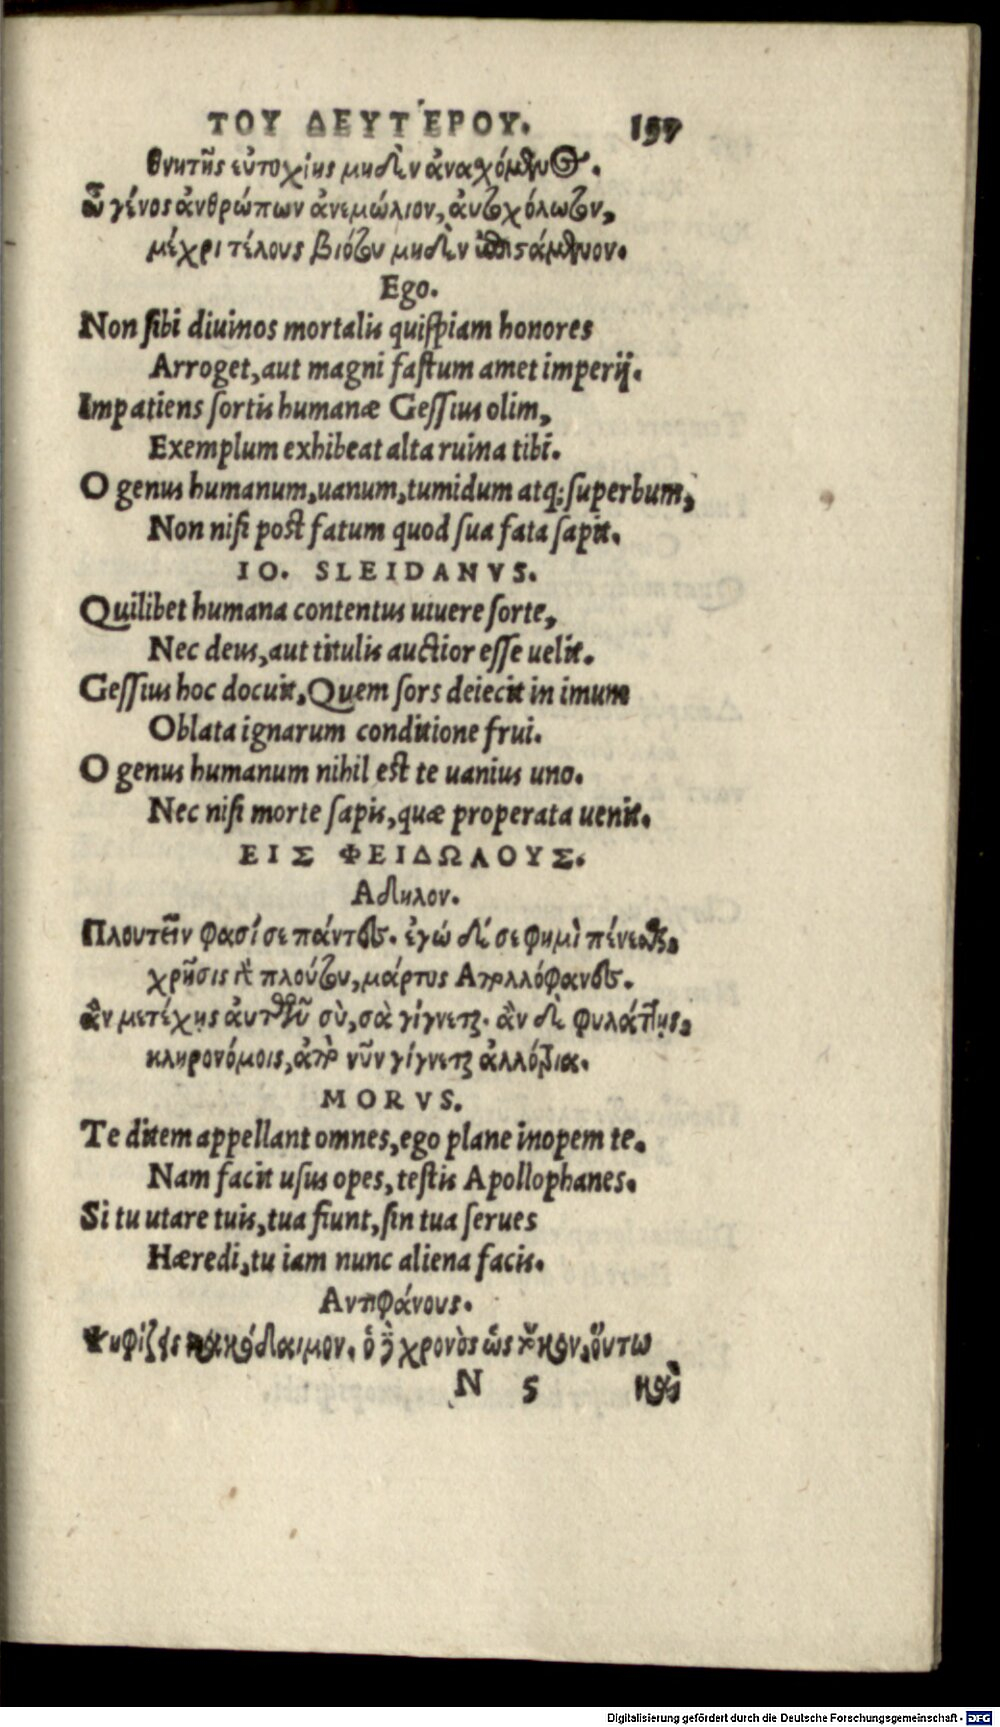 ΤΟΥ ΔΕΥΤΈΡΟΥ. 197
θνητῆς εὐτυχίης μηδὲν ἀναχόμενος.
ὦ γένος ἀνθρώπων ἀνεμώλιον, αὐτοχόλωτον,
μέχρι τέλους βιότου μηδὲν ἐπιστάμενον.
Ego.
Non sibi diuinos mortalis quispiam honores
Arroget, aut magni fastum amet imperij.
Impatiens sortis humanæ Gessius olim,
Exemplum exhibeat alta ruina tibi.
O genus humanum, uanum, tumidum atq; superbum,
Non nisi post fatum quod sua fata sapit.
IO. SLEIDANVS.
Quilibet humana contentus uiuere sorte,
Nec deus, aut titulis auctior esse uelit.
Gessius hoc docuit, Quem sors deiecit in imum
Oblata ignarum conditione frui.
O genus humanum nihil est te uanius uno.
Nec nisi morte sapis, quæ properata uenit.
ΕΙΣ ΦΕΙΔΩΛΟΥΣ.
Αδηλον.
Πλουτεῖν φασί σε πάντες. ἐγώ δέ σε φημὶ πένεσθαι,
χρῆσις γὰρ πλούτου, μάρτυς Απολλόφανες.
ἂν μετέχῃς αὐτοῦ σὺ, σὰ γίγνεται. ἂν δὲ φυλάττῃς,
κληρονόμοις, ἀπὸ νῦν γίγνεται ἀλλότρια.
MORVS.
Te ditem appellant omnes, ego plane inopem te.
Nam facit usus opes, testis Apollophanes.
Si tu utare tuis, tua fiunt, sin tua serues
Hæredi, tu iam nunc aliena facis.
Αντιφάνους.
Ψηφίζεις κακόδαιμον. ὁ δὲ χρονὸς ὡς τόκον, οὕτω
N 5 καὶ
Digitalisierung gefördert durch die Deutsche Forschungsgemeinschaft - DFG